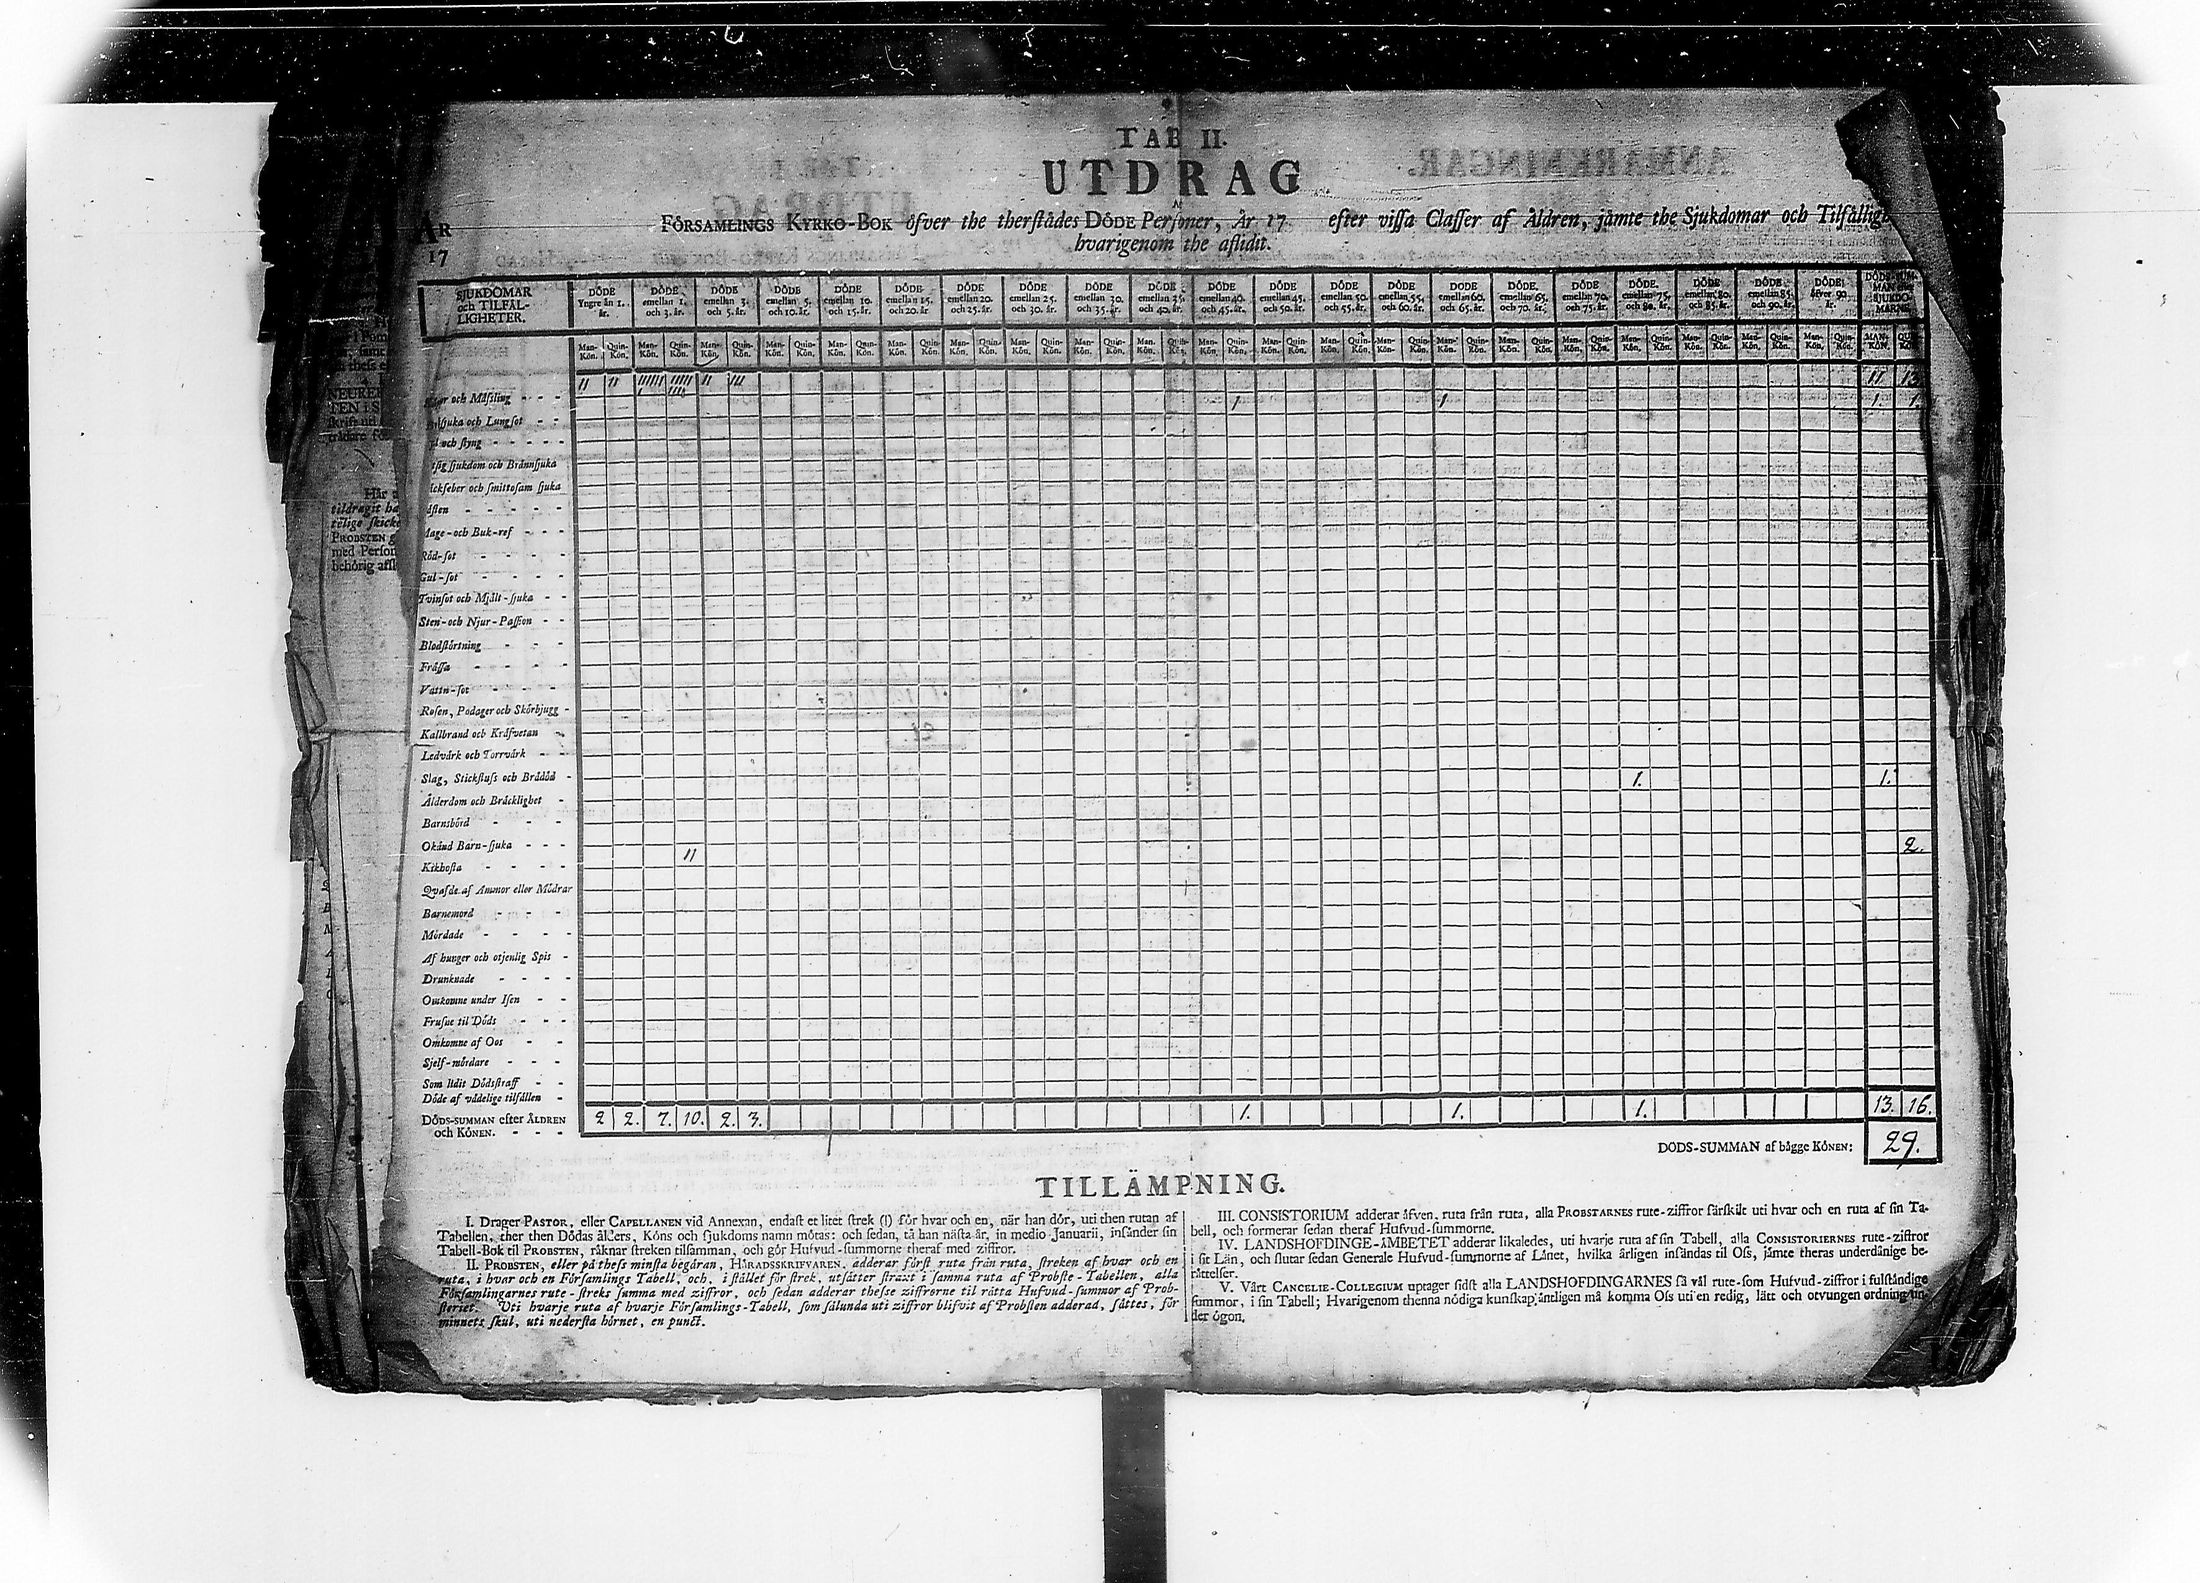 TAB II.
UTDRAG
ÅR
17
FÖRSAMLINGS KYRKO-BOK öfver the therstädes DÖDE Personer, År 17 efter vissa Classer af Åldren, jämte the Sjukdomar och
hvarigenom the aflidit.
SJUKDOMAR och TILFÄL-LIGHETER.
DÖDE Yngre än 1. år.
DÖDE emellan 1. och 3. år.
DÖDE emellan 3. och 5. år.
DÖDE emellan 5. och 10. år.
DÖDE emellan 10. och 15. år.
DÖDE emellan 15. och 20 år
DÖDE emellan 20. och 25. år.
DÖDE emellan 25. och 30. år.
DÖDE emellan 30. och 35. år.
DÖDE emellan 35. och 40. år.
DÖDE emellan 40. och 45. år.
DÖDE emellan 45. och 50. år.
DÖDE emellan 50. och 55. år.
DÖDE emellan 55. och 60. år.
DÖDE emellan 60. och 65. år.
DÖDE. emellan 65. och 70. år.
DÖDE emellan 70. och 75. år.
DÖDE. emellan 75. och 80. år.
DÖDE emellan 80. och 85. år.
DÖDE emellan 85. och 90. år.
DÖDE öfver 90 år.
Man-Kön. Quin-Kön. Man-Kön. Quin-Kön. Man-Kön. Quin-Kön. Man-Kön. Quin-Kön. Man-Kön. Quin-Kön. Man-Kön. Quin-Kön. Man-Kön. Quin-Kön. Man-Kön. Quin-Kön. Man-Kön. Quin-Kön. Man-Kön. Quin-Kön. Man-Kön. Quin-Kön. Man-Kön. Quin-Kön. Man-Kön. Quin-Kön. Man-Kön. Quin-Kön. Man-Kön. Quin-Kön. Man-Kön. Quin-Kön. Man-Kön. Quin-Kön. Man-Kön. Quin-Kön. Man-Kön. Quin-Kön. Man-Kön. Quin-Kön. Man-Kön. Quin-Kön. MAN-KÖN.
och Mässling - - - 11 13
och Lungsot - - 1 1 1. 1.
och styng - - - - -
sjukdom och Brännsjuka
och smittosam sjuka
- - - - - -
och Buk-ref - - -
Röd-sot - - - -
Gul-sot - - - -
Tvinsot och Mjält-sjuka - -
Sten-och Njur-Passion - -
Blodstörtning - - -
Frässa - - - -
Vattn-sot - - - -
Rosen, Podager och Skörbjugg -
Kallbrand och Kräfvetan -
Ledvärk och Torrvärk - -
Slag, Stickfluss och Brådöd - 1. 1.
Ålderdom och Bräcklighet -
Barnsbörd - - -
Okänd Barn-sjuka - - - 11 2.
Kikhosta - - - -
Qvafde af Ammor eller Mödrar
Barnemord - - -
Mördade - - - -
Af hunger och otjenlig Spis -
Drunknade - - - -
Omkomne under Isen - -
Frusne til Döds - - -
Omkomne af Oos - -
Sjelf-mördare - - -
Som lidit Dödsstraff - -
Döde af vådelige tilfällen -
DÖDS-SUMMAN efter ÅLDREN och KÖNEN. - - - 2 2. 7. 10. 2. 3. 1. 1. 1. 13. 16.
DÖDS-SUMMAN af bägge KÖNEN: 29.
TILLÄMPNING.
I. Drager PASTOR, eller CAPELLANEN vid Annexan, endast et litet strek (|) för hvar och en, när han dör, uti then rutan af
Tabellen, ther then Dödas ålders, Köns och sjukdoms namn mötas: och sedan, tå han nästa år, in medio Januarii, insänder sin
Tabell-Bok til PROBSTEN, räknar streken tilsamman, och gör Hufvud-summorne theraf med ziffror.
II. PROBSTEN, eller på thess minsta begäran, HÄRADSSKRIFVAREN, adderar först ruta från ruta, streken af hvar och en
ruta, i hvar och en Församlings Tabell, och, i stället för strek, utsätter straxt i samma ruta af Probste-Tabellen, alla
Församlingarnes rute-streks summa med ziffror, och sedan adderar thesse ziffrorne til rätta Hufvud-summor af Prob-
steriet. Uti hvarje ruta af hvarje Församlings-Tabell, som sålunda uti ziffror blifvit af Probsten adderad, sättes, för
minnets skul, uti nedersta hörnet, en punct.
III. CONSISTORIUM adderar äfven, ruta från ruta, alla PROBSTARNES rute-ziffror särskilt uti hvar och en ruta af sin Ta-
bell, och formerar sedan theraf Hufvud-summorne.
IV. LANDSHÖFDINGE-ÄMBETET adderar likaledes, uti hvarje ruta af sin Tabell, alla CONSISTORIERNES rute-ziffror
i sit Län, och slutar sedan Generale Hufvud-summorne af Länet, hvilka årligen insändas til Oss, jämte theras underdånige be-
rättelser.
V. Vårt CANCELIE-COLLEGIUM uptager sidst alla LANDSHÖFDINGARNES så väl rute-som Hufvud-ziffror i fulständige
summor, i sin Tabell; Hvarigenom thenna nödiga kunskap äntligen må komma Oss uti en redig, lätt och otvungen ordning un-
der ögon.